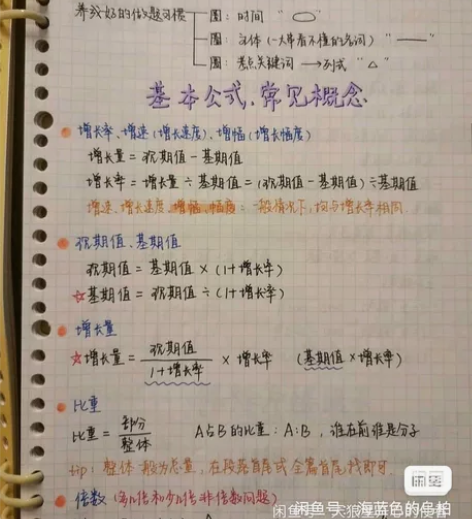 养成好的做题习惯 圈: 时间 "○"
圈: 主体 (一大串看不懂的名词) "——"
圈: 考点关键词 → 列式 "△"
基本公式、常见概念
增长率、增速(增长速度)、增幅(增长幅度)
增长量 = 现期值 - 基期值
增长率 = 增长量 ÷ 基期值 = (现期值 - 基期值) ÷ 基期值
增速、增长速度、增幅、幅度: 一般情况下, 均与增长率相同.
现期值、基期值
现期值 = 基期值 × (1+增长率)
☆基期值 = 现期值 ÷ (1+增长率)
增长量
☆增长量 = 现期值/1+增长率 × 增长率 (基期值×增长率)
比重
比重 = 部分/整体 A占B的比重: A÷B, 谁在前谁是分子
tip: 整体一般为总量, 在段落首尾或全篇首尾找即可.
倍数 (多几倍和少几倍非倍数问题)
闲鱼
闲鱼号 海蓝色的乌柏